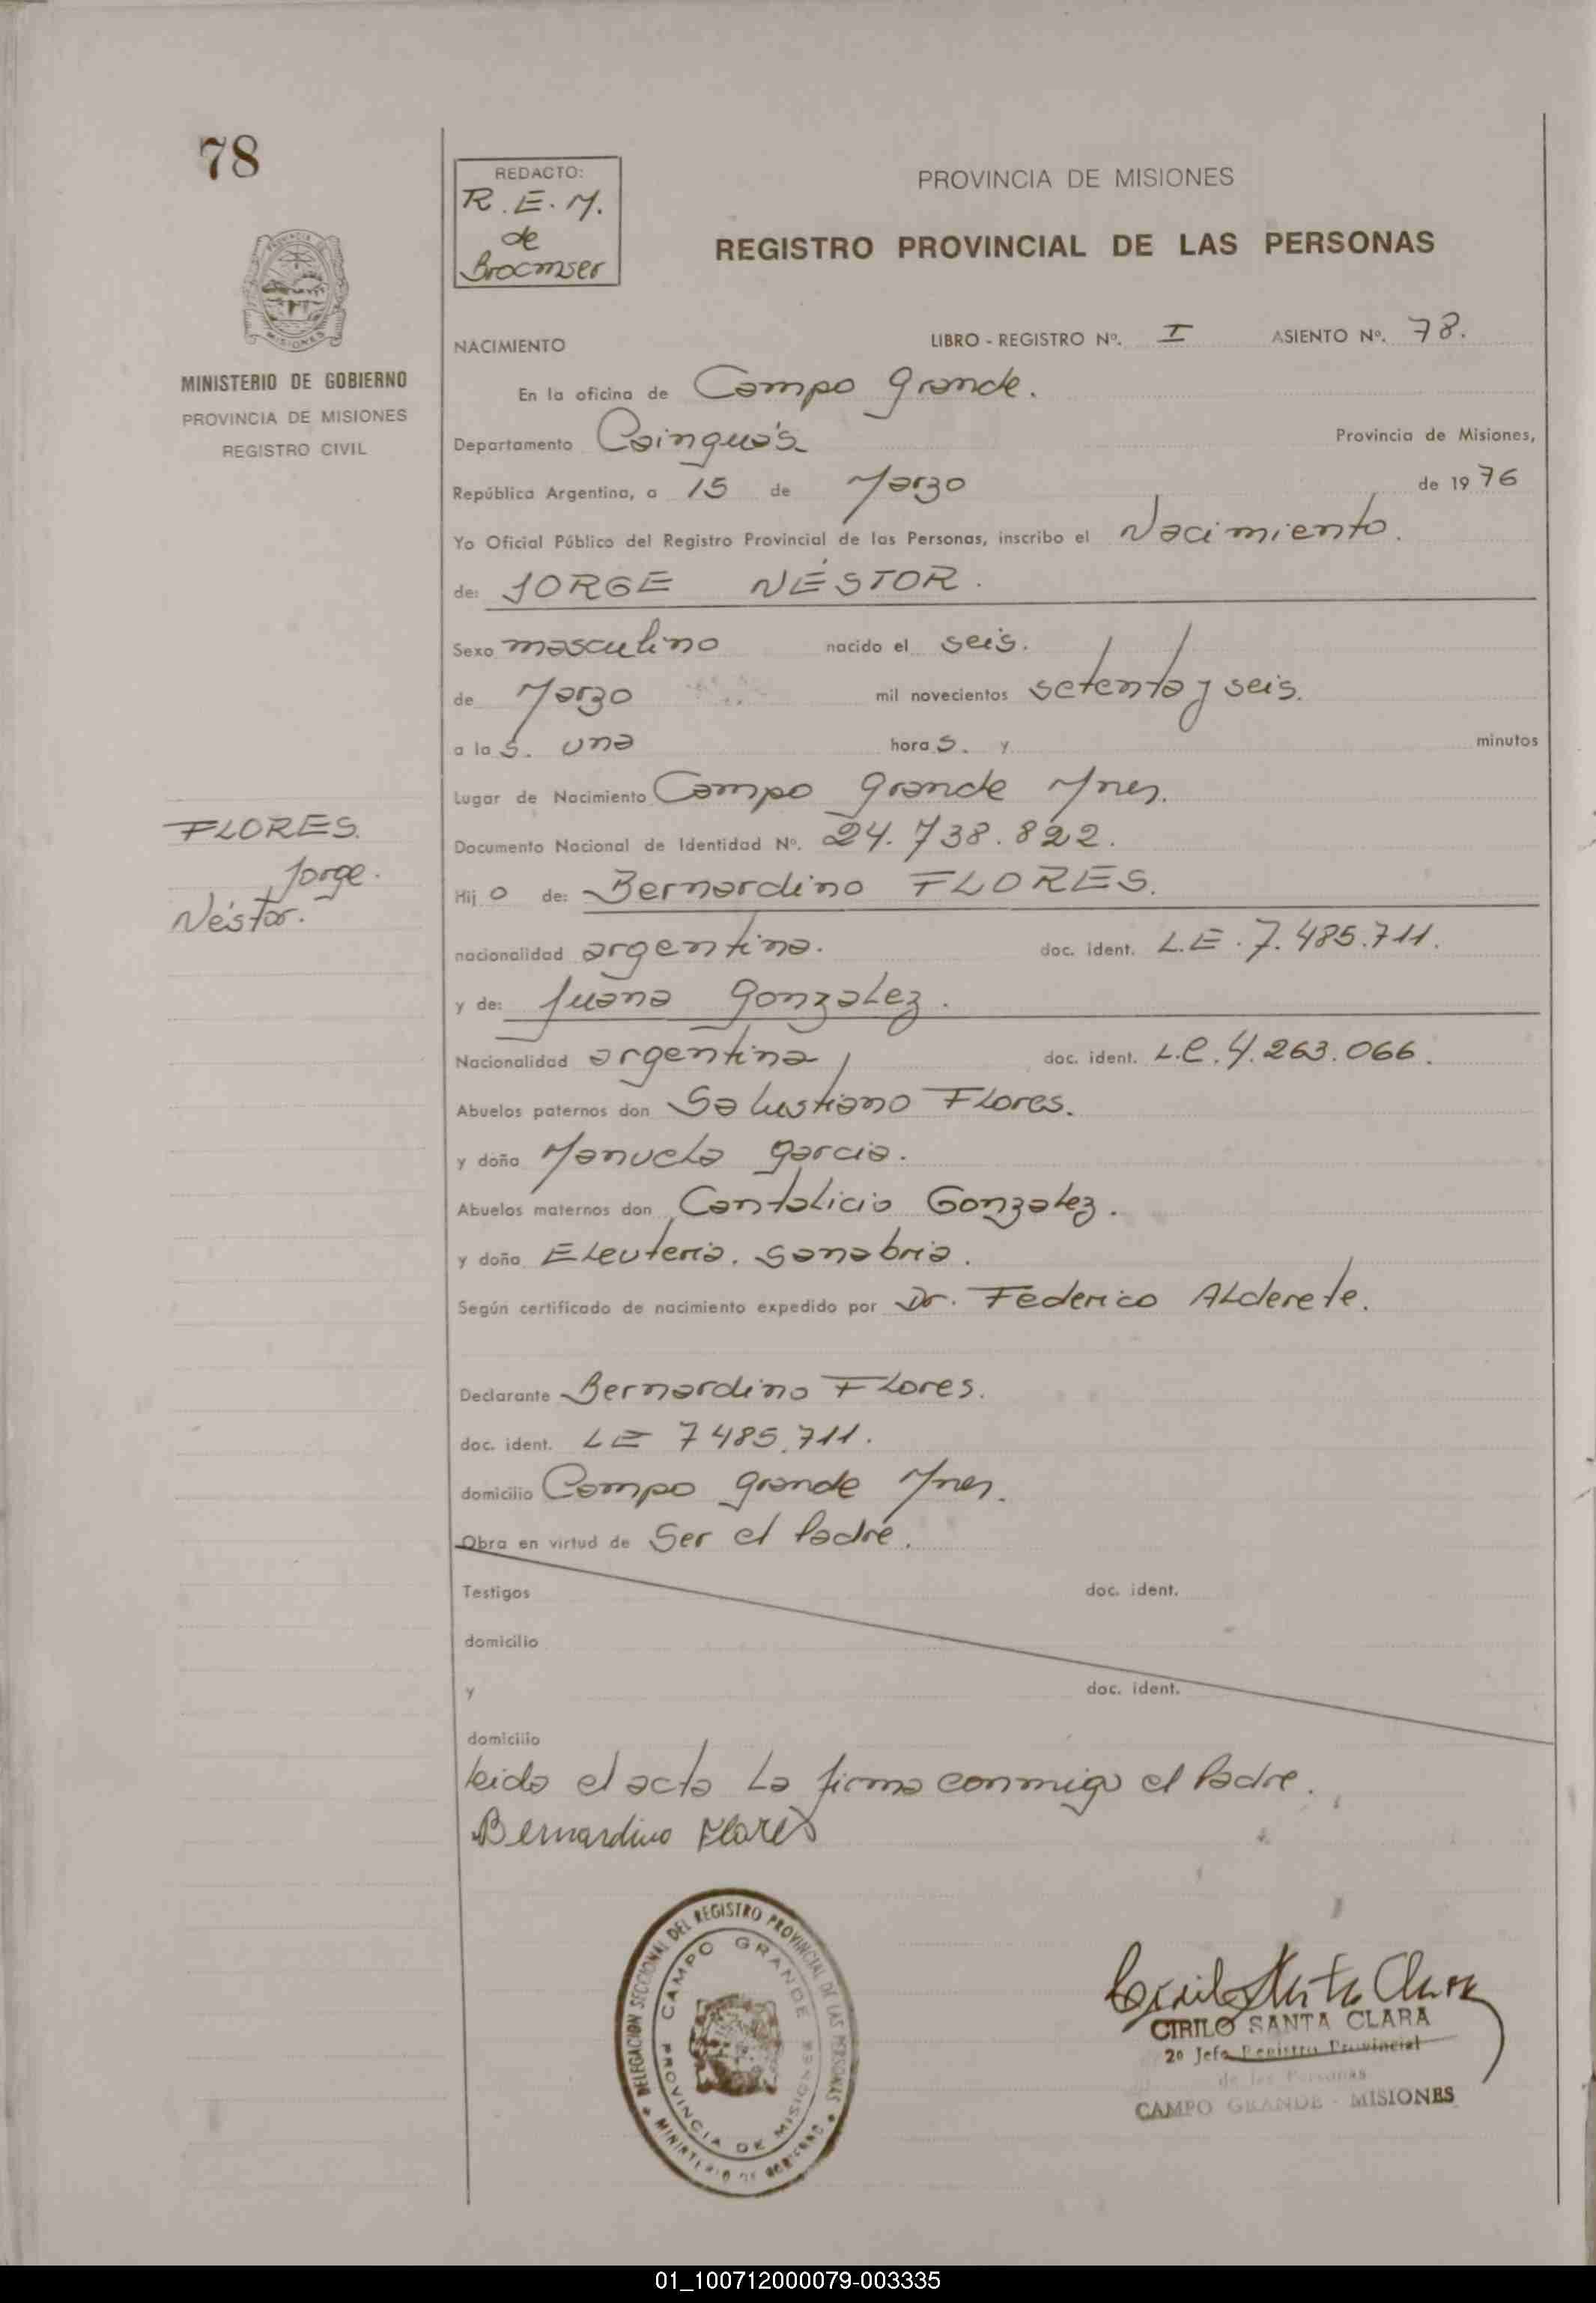 78
REDACTO:
R.E.M.
de
Brocmser
PROVINCIA DE MISIONES
REGISTRO PROVINCIAL DE LAS PERSONAS
MINISTERIO DE GOBIERNO
PROVINCIA DE MISIONES
REGISTRO CIVIL
NACIMIENTO LIBRO - REGISTRO Nº. I ASIENTO Nº. 78.
En la oficina de Campo Grande.
Departamento Cainguás Provincia de Misiones,
República Argentina, a 15 de Marzo de 1976
Yo Oficial Público del Registro Provincial de las Personas, inscribo el Nacimiento.
de: JORGE NÉSTOR.
Sexo masculino nacido el seis.
de Marzo mil novecientos setenta y seis.
a las. una horas. y minutos
Lugar de Nacimiento Campo Grande Mnes.
Documento Nacional de Identidad Nº. 24.738.822.
FLORES.
Jorge.
Néstor.
Hijo de: Bernardino FLORES.
nacionalidad argentina. doc. ident. L.E. 7.485.711.
y de: Juana Gonzalez.
Nacionalidad argentina doc. ident. L.C. 4.263.066.
Abuelos paternos don Salustiano Flores.
y doña Manuela Garcia.
Abuelos maternos don Cantalicio Gonzalez.
y doña Eleuteria. Sanabria.
Según certificado de nacimiento expedido por Dr. Federico Alderete.
Declarante Bernardino Flores.
doc. ident. LE 7485.711.
domicilio Campo Grande Mnes.
Obra en virtud de Ser el Padre.
Testigos doc. ident.
domicilio
y doc. ident.
domicilio
leida el acta La firma conmigo el Padre.
Bernardino Flores
DELEGACION SECCIONAL DEL REGISTRO PROVINCIAL DE LAS PERSONAS
MINISTERIO DE GOBIERNO
CAMPO GRANDE
PROVINCIA DE MISIONES
Cirilo Santa Clara
CIRILO SANTA CLARA
2º Jefe Registro Provincial
de las Personas
CAMPO GRANDE - MISIONES
01_100712000079-003335